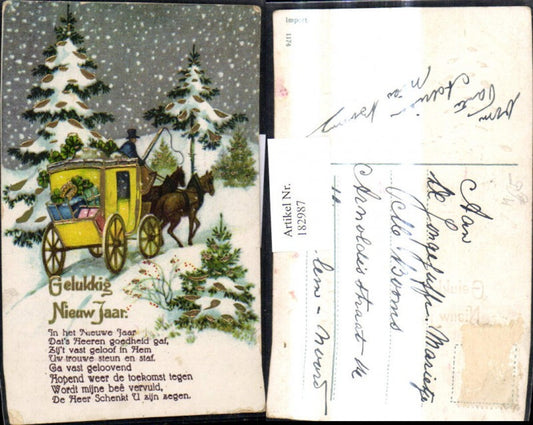 Gelukkig
Nieuw Jaar.
In het Nieuwe Jaar
Dat's Heeren goedheid gaf,
Zij't vast geloof in Hem
Uw trouwe steun en staf.
Ga vast geloovend
Hopend weer de toekomst tegen
Wordt mijne beê vervuld,
De Heer Schenkt U zijn zegen.
Import
1124
Artikel Nr.
182987
Aan
De Jongejuffr. Marietje
Arnoldis straat